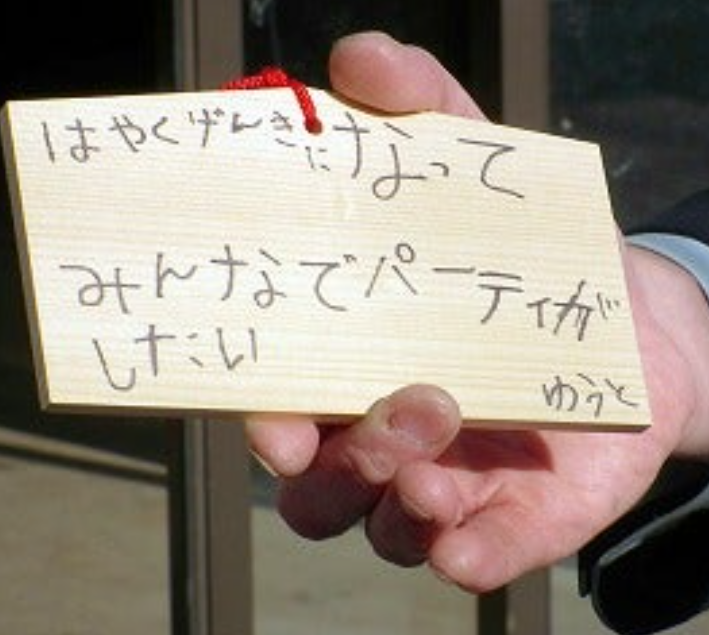 はやくげんきになって
みんなでパーティが
したい
ゆうと